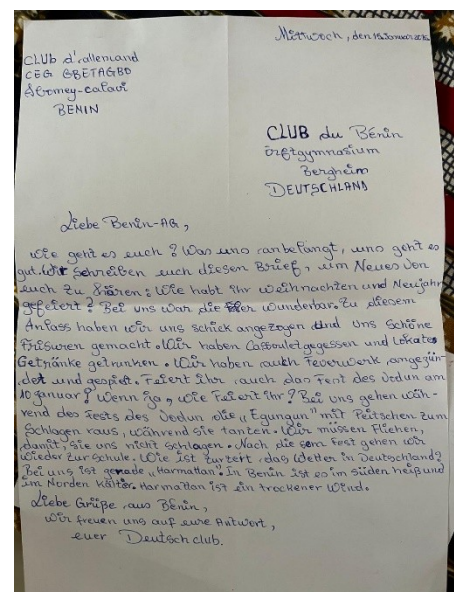 Mittwoch, den 15 Januar 2025
CLUB d'allemand
CEG GBETAGBO
Abomey-calavi
BENIN
CLUB du Bénin
Erftgymnasium
Bergheim
DEUTSCHLAND
Liebe Benin-AG,
wie geht es euch? Was uns anbelangt, uns geht es
gut. Wir schreiben euch diesen Brief, um Neues von
euch zu hören: Wie habt ihr Weihnachten und Neujahr
gefeiert? Bei uns war die Feier wunderbar. Zu diesem
Anlass haben wir uns schick angezogen und uns schöne
Frisuren gemacht. Wir haben Cassoulet gegessen und lokates
Getränke getrunken. Wir haben auch Feuerwerk angezün-
det und gespielt. Feiert ihr auch das Fest des Vodun am
10 Januar? Wenn ja, wie feiert ihr? Bei uns gehen wäh-
rend des Fests des Vodun die „Egungun" mit Peitschen zum
Schlagen raus, während sie tanzen. Wir müssen fliehen,
damit sie uns nicht schlagen. Nach die sem Fest gehen wir
wieder zur Schule. Wie ist zurzeit das Wetter in Deutschland?
Bei uns ist gerade „Harmattan". In Benin ist es im Süden heiß und
im Norden kälter. Harmattan ist ein trockener Wind.
Liebe Grüße aus Bénin,
wir freuen uns auf eure Antwort,
euer Deutschclub.